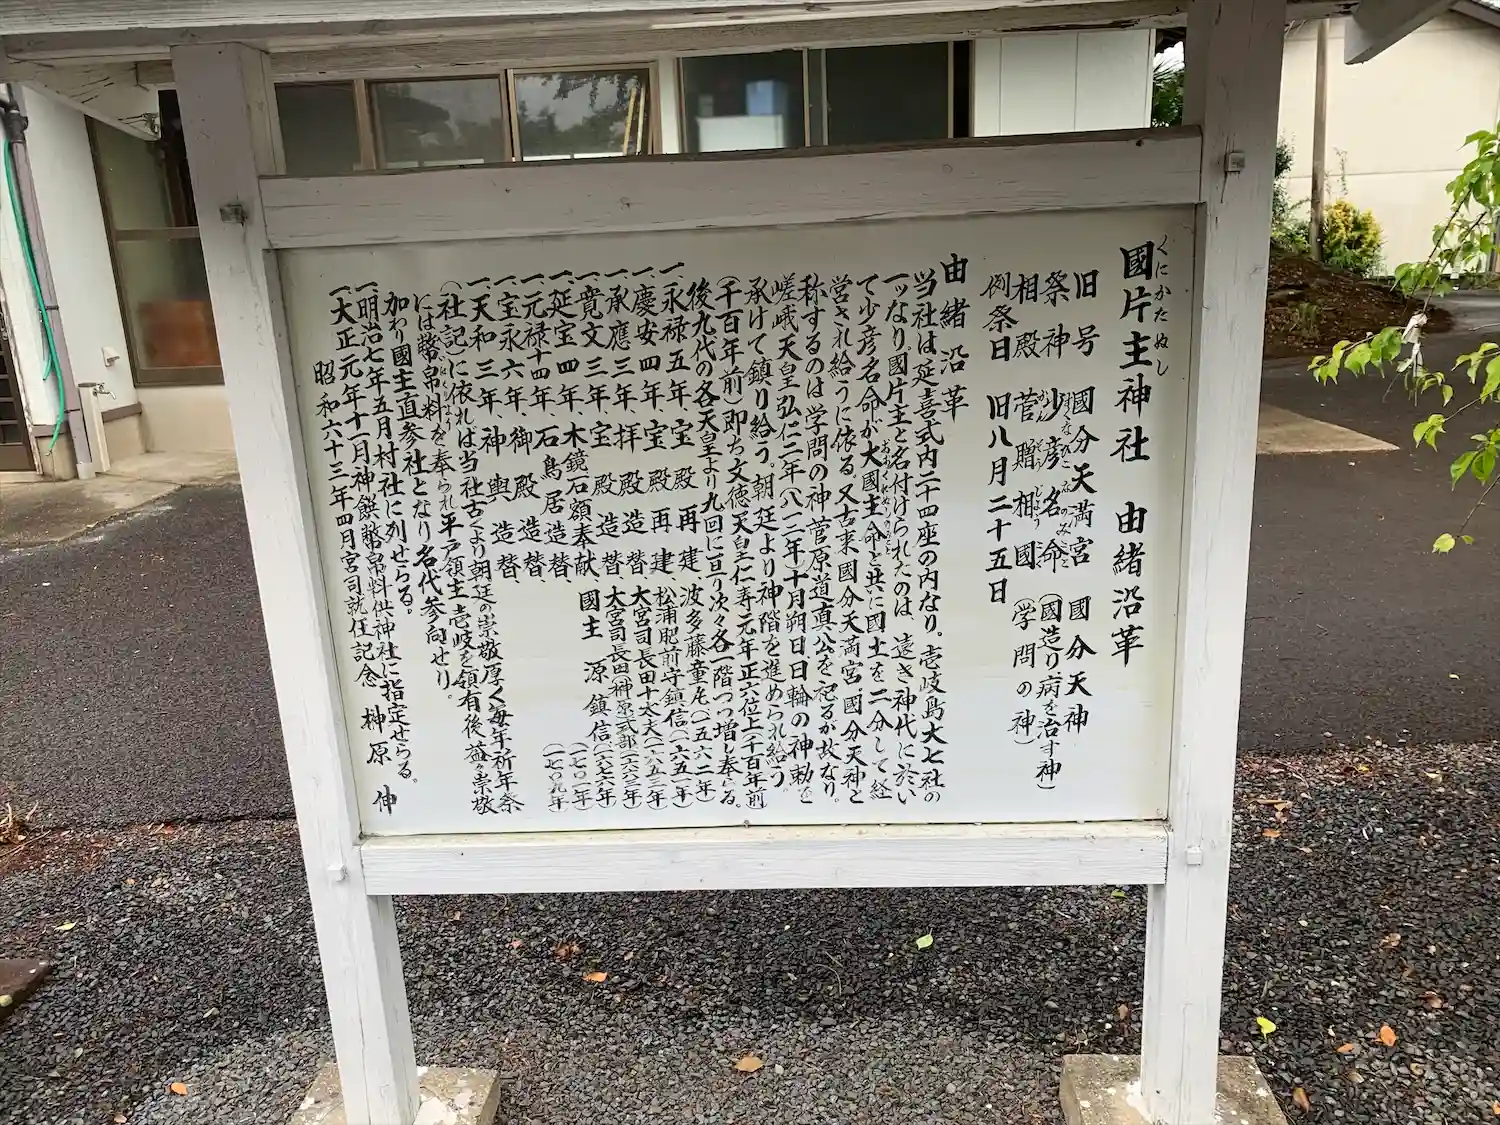 國片主神社　由緒沿革
くにかたぬし
旧号　國分天満宮　國分天神
祭神　少彦名命　（國造り病を治す神）
すくなひこなのみこと
相殿　菅贈相國　（学問の神）
かんぞうじょう
例祭日　旧八月二十五日
由緒沿革
当社は延喜式内二十四座の内なり。壱岐島大七社の
一ッなり、國片主と名付けられたのは、遠き神代に於い
て少彦名命が大國主命と共に國土を二分して経
営され給うに依る　又古来國分天満宮、國分天神と
称するのは学問の神菅原道真公を祀るが故なり。
嵯峨天皇弘仁二年（八一二年）十月朔日日輪の神勅を
承けて鎮り給う。朝廷より神階を進められ給う
（千百年前）即ち文徳天皇仁寿元年正六位上（千百年前
後九代の各天皇より九回に亘り次々各一階つつ増し奉らる。
一、永禄五年、宝殿再建、波多藤童丸（一五六二年）
一、慶安四年、宝殿再建、松浦肥前守鎮信（一六五一年）
一、承應三年、拝殿造替、大宮司長田十太夫（一六五二年）
一、寛文三年、宝殿造替、大宮司長田榊原式部（一六六三年）
一、延宝四年、木鏡石額奉献、國主　源鎮信（一六七六年）
一、元禄十四年、石鳥居造替、（一七〇一年）
一、宝永六年、御殿造替（一七〇九年）
一、天和三年、神輿造替
（社記）に依れは当社古くより朝廷の崇敬厚く毎年祈年祭
には幣帛料を奉られ平戸領主壱岐を領有後益々崇敬
加わり國主直参社となり名代参向せり。
一、明治七年五月村社に列せらる。
一、大正元年十一月神饌幣帛料供神社に指定せらる。
昭和六十三年四月宮司就任記念　榊原　伸